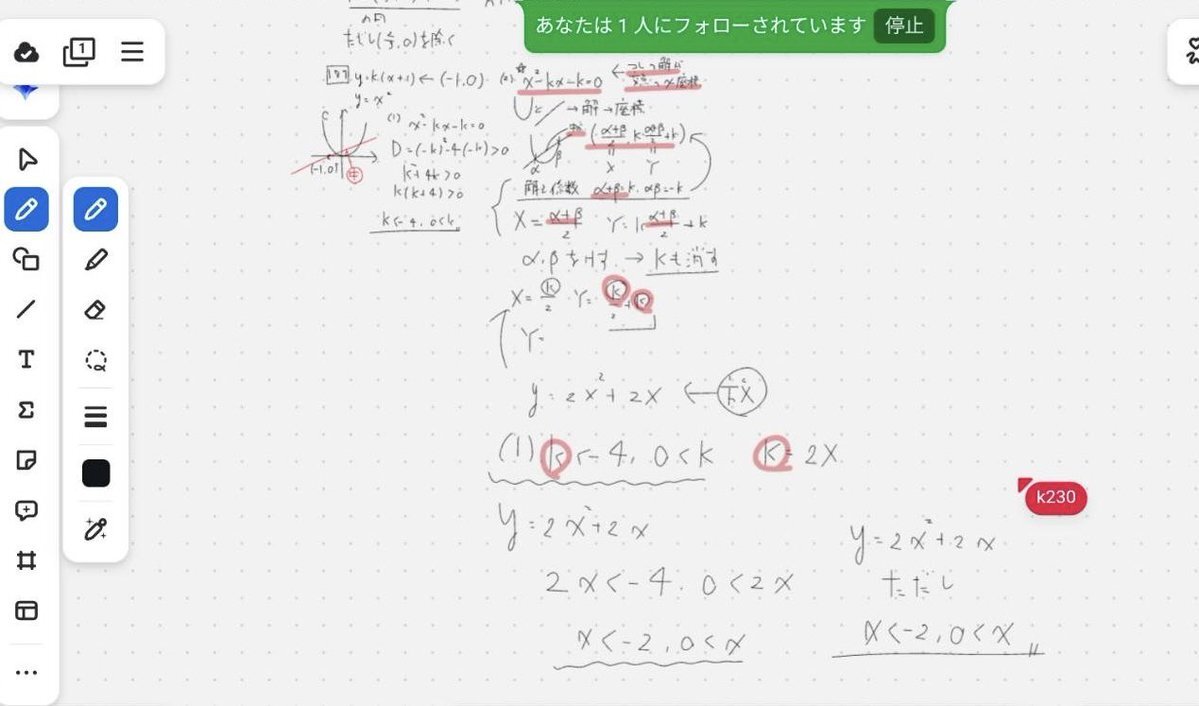 あなたは1人にフォローされています 停止
1
ただし(,0)を除く
y=k(x+1)←(-1,0)
y=x²
C
(-1.0)
(1) x²-kx-k=0
D=(-k)²-4(-k)>0
k²+4k>0
k(k+4)>0
k<-4, 0<k
(2) x²-kx-k=0 ←
→解→座標
α β (α+β/2, k・α+β/2+k)
X Y
解と係数 α+β=k, αβ=-k
X=α+β/2 Y=k α+β/2+k
α,βを消す.→kも消す
X=k/2 Y=k²/2+k
Y=
y=2x²+2x ←
(1) k<-4, 0<k k=2X
y=2x²+2x
2x<-4, 0<2x
x<-2, 0<x
k230
y=2x²+2x
ただし
x<-2, 0<x
T
Σ